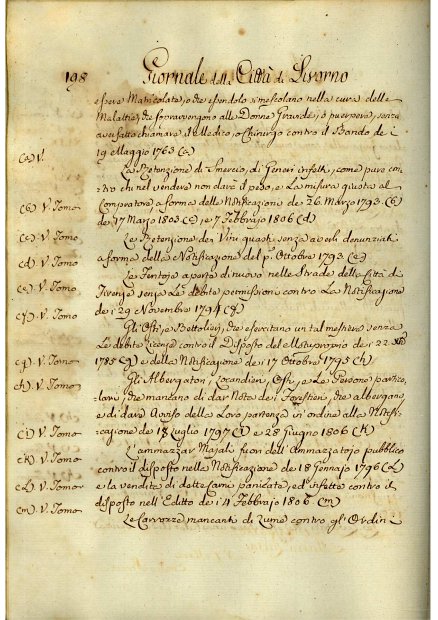 198
Giornale della Città di Livorno
essere Matricolate, o che essendolo si mescolano nella cura delle
Malattie, che sopravengono alle Donne Gravide, o puerpere, senza
aver fatto chiamare il Medico, o Chirurgo contro il Bando de i
19 Maggio 1763 (a)
(a) V.
La Retenzione, di Smercio, di Generi infetti, come pure con-
tro chi nel vendere non dare il peso, e la misura giusta al
Compratore a forma delle Notificazione de 26. Marzo 1793. (b)
(b) V. Tomo
de 17 Marzo 1803 (c) e 7 Febbrajo 1806 (d)
(c) V. Tomo
Le Retenzione dei Vini guasti senza averli denunziati
(d) V. Tomo
a forma della Notificazione del p.º Ottobre 1793 (e)
(e) V. Tomo
Le Tentoja aperte di nuovo nelle Strade della Città di
Firenze senza le debite permissioni contro la Notificazione
(f) V. Tomo
de i 29 Novembre 1794 (f)
Gli Osti, e Bettolieri, che esercitano un tal mestiere senza
le debite licenze contro il Disposto del Motuproprio de i 22 Xbre
(g) V. Tomo
1785 (g) e della Notificazione de i 17 Ottobre 1795 (h)
(h) V. Tomo
Gli Albergatori, Locandieri, Osti, e le Persone partico-
lari, che mancano di dar Note de i Forestieri, che albergano
e di dare Avviso della Loro partenza in ordine alla Notifi-
(i) V. Tomo
cazione de 18 Luglio 1797 (i) e 28 Giugno 1806 (k)
L'ammazzar Majali fuori dell'Ammazzatojo pubblico
(k) V. Tomo
contro il disposto nella Notificazione de 18 Gennajo 1796 (L)
(L) V. Tomo
e la vendita di dette carni panicate, ed infette contro il
(m) V. Tomo
disposto nell'Editto de i 4 Febbrajo 1806 (m)
Le Carrozze mancanti di Lume contro gl'Ordini